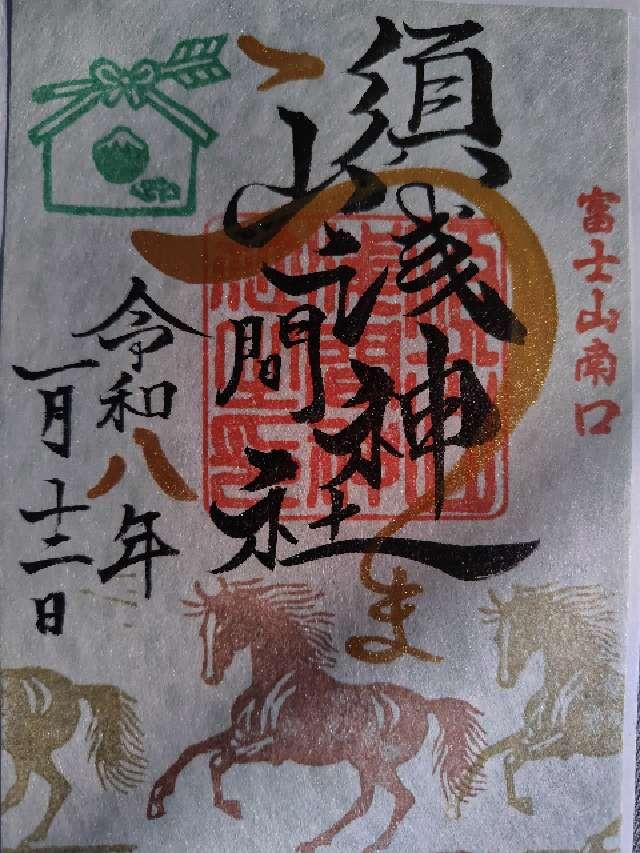 富士山南口
須山浅間神社
うま
令和八年
一月十二日